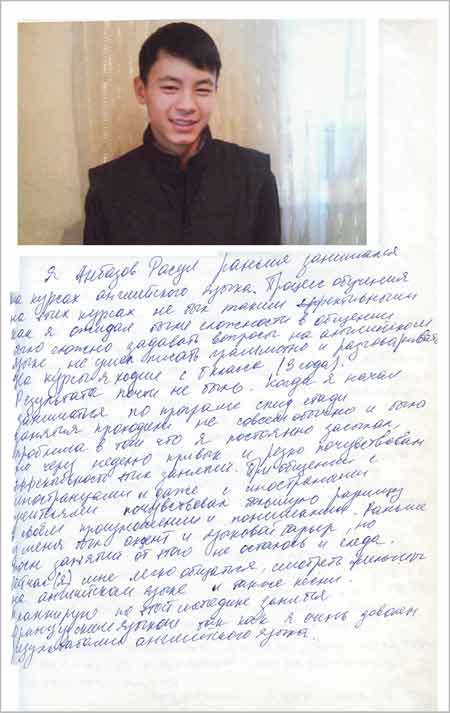 Я Анбазов Расул раньше занимался
на курсах английского языка. Процесс обучения
на этих курсах не был таким эффективным
как я ожидал были сложности в общении
было сложно задавать вопросы на английском
языке, не умел писать грамотно и разговаривать
На курсы я ходил с класса (3 года).
Результата почти не было. Когда я начал
заниматься по програме спид стади
занятия проходили не совсем обычно и была
проблема в том что я постоянно засыпал,
но через неделю привык и резко почувствовал
эффективность этих занятий. При общении с
иностранцами и даже с иностранными
учителями почувствовал большую разницу
в своём произношении и понимании. Раньше
у меня был акцент и языковой барьер, но
после занятий от этого не осталось и следа.
Сейчас (я) мне легко общаться, смотреть фильмы
на английском языке и также песни.
Планирую по этой методике занятия
французским языком так как я очень доволен
результатами английского языка.